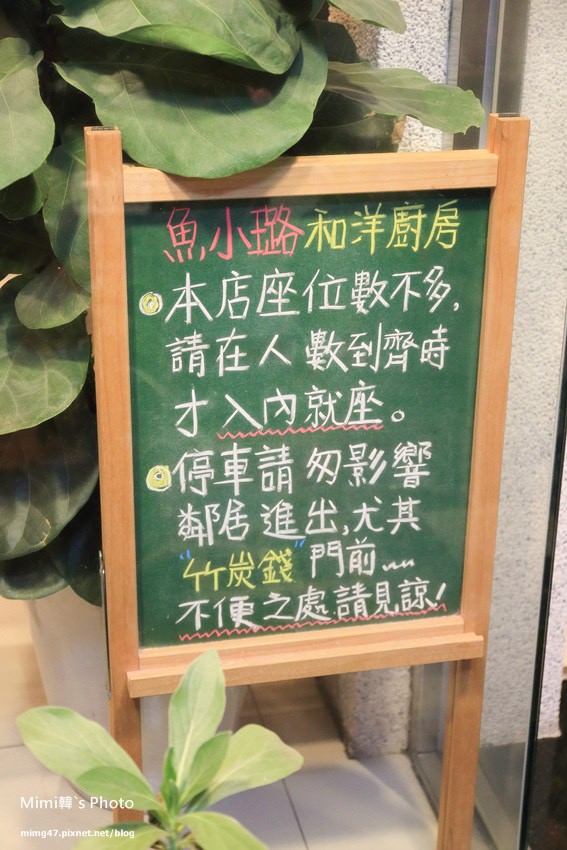 魚小璐和洋廚房
本店座位數不多,
請在人數到齊時
才入內就座。
停車請匆影響
鄰居進出,尤其
"竹炭錢"門前~~
不便之處請見諒!
Mimi韓`s Photo
mimg47.pixnet.net/blog